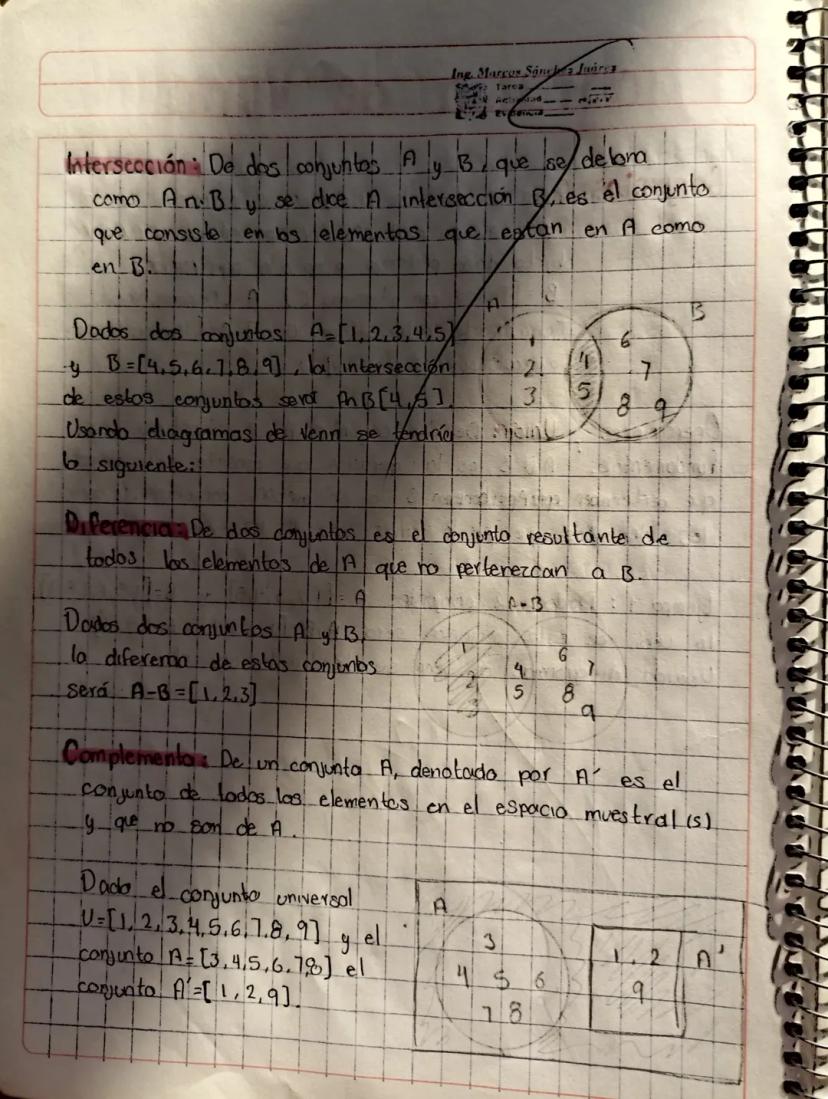 Ing. Marcos Sánchez Juárez
Tarea
Actividad
Evidencia
Intersección: De dos conjuntos A y B, que se debna
como A∩B y se dice A intersección B, es el conjunto
que consiste en los elementos que estan en A como
en B.
A
B
Dados dos conjuntos A=[1,2,3,4,5]
y B=[4,5,6,7,8,9], la intersección
de estos conjuntos será A∩B[4,5].
Usando diagramas de Venn se tendría
lo siguiente:
1
2
3
4
5
6
7
8 9
Diferencia: De dos conjuntos es el conjunto resultante de
todos los elementos de A que no pertenezcan a B.
A-B
Dados dos conjuntos A y B,
la diferenia de estos conjuntos
será A-B=[1,2,3]
1
2
3
4
5
6
7
8
9
Complemento: De un conjunto A, denotado por A' es el
conjunto de todos los elementos en el espacio muestral (s)
y que no son de A.
Dado el conjunto universal
U=[1,2,3,4,5,6,7,8,9] y el
conjunto A=[3,4,5,6,7,8] el
conjunto A'=[1,2,9].
A
3
4 5 6
7 8
1, 2
9
A'